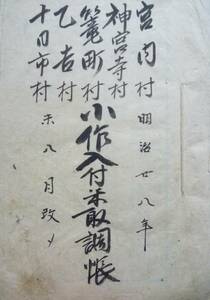 明治廿八年
未八月改メ
小作入付米取調帳
宮内村
神宮寺村
篭町村
乙吉村
十日市村